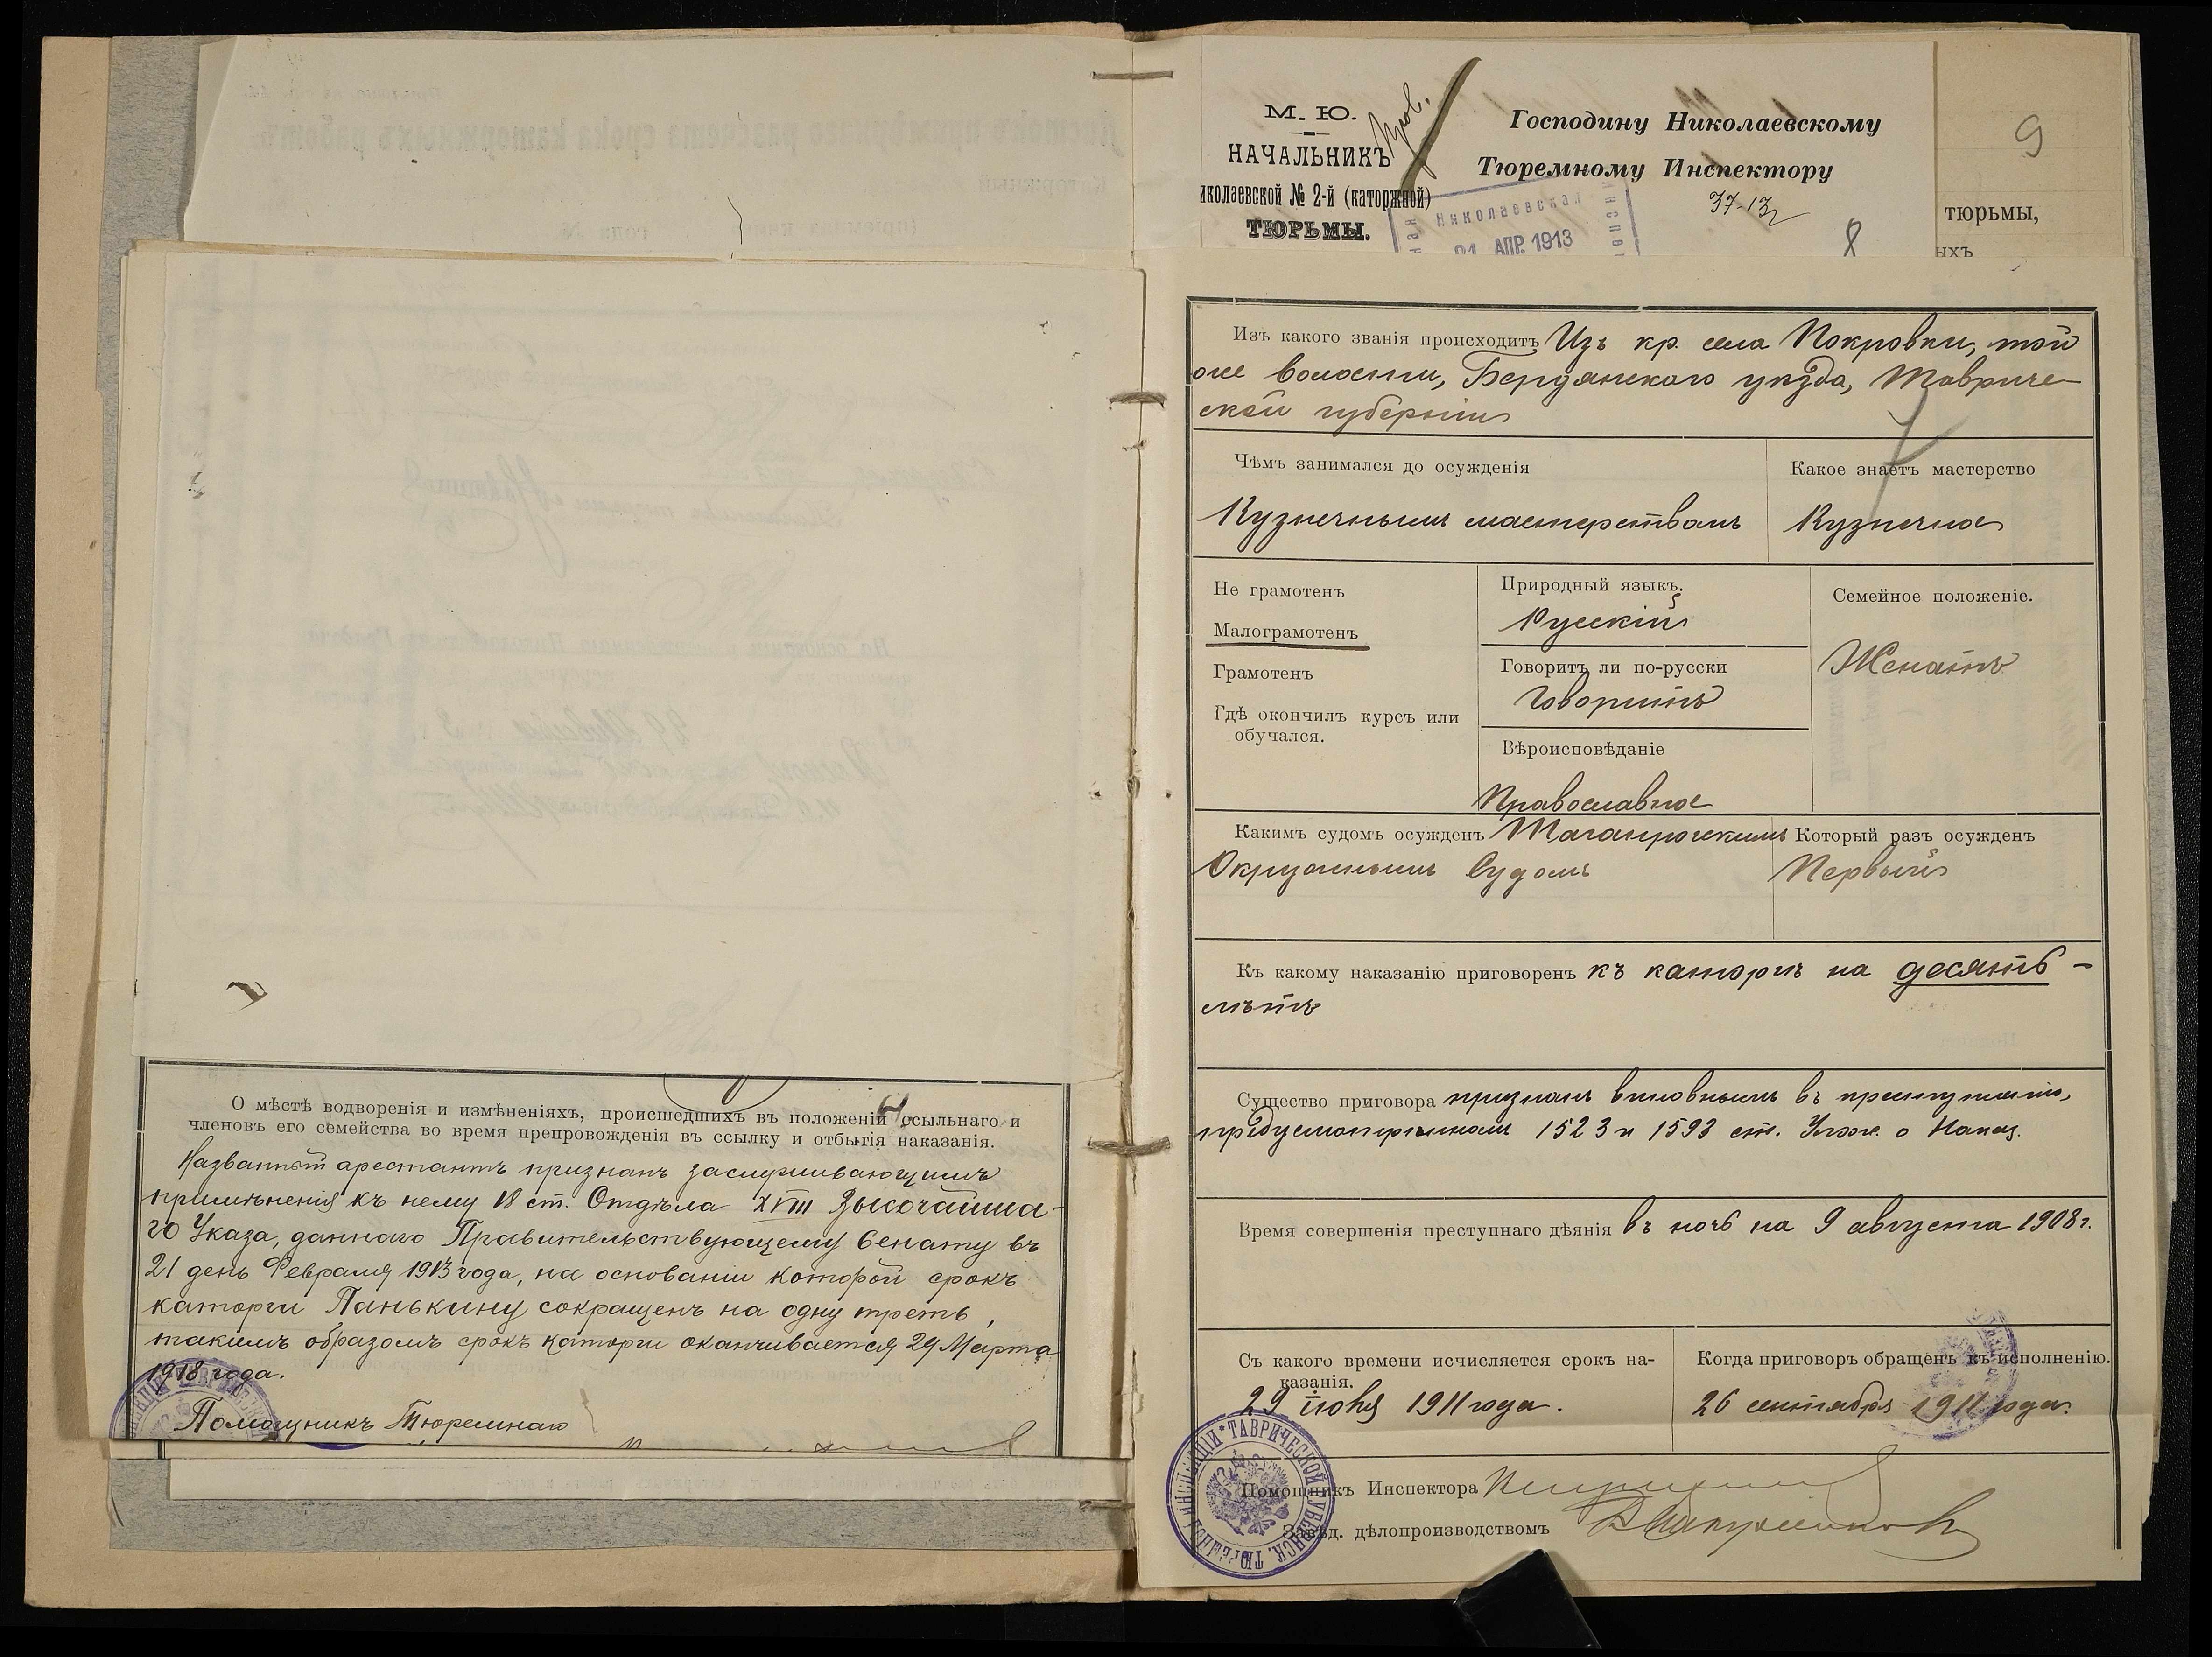 О мѣстѣ водворенія и измѣненіяхъ, происшедшихъ въ положеніи ссыльнаго и
членовъ его семейства во время препровожденія въ ссылку и отбытія наказанія.
Названный арестантъ признанъ заслуживающимъ
примѣненія къ нему 18 ст. Отдѣла XVIII Высочайша-
го Указа, даннаго Правительствующему Сенату въ
21 день Февраля 1913 года, на основаніи которой срокъ
каторги Панькину сокращенъ на одну треть,
такимъ образомъ срокъ каторги оканчивается 29 Марта
1918 года.
Помощникъ Тюремнаго
М. Ю.
НАЧАЛЬНИКЪ
иколаевской № 2-й (каторжной)
ТЮРЬМЫ.
Господину Николаевскому
Тюремному Инспектору
37-13
Николаевская
21 АПР. 1913
8
9
тюрьмы,
ыхъ
Изъ какого званія происходитъ Изъ кр. села Покровки, той
же волости, Бердянскаго уѣзда, Тавриче-
ской губерніи
Чѣмъ занимался до осужденія
Кузнечнымъ мастерствомъ
Какое знаетъ мастерство
Кузнечное
Не грамотенъ
Малограмотенъ
Грамотенъ
Гдѣ окончилъ курсъ или
обучался.
Природный языкъ.
Русскій
Говоритъ ли по-русски
Говоритъ
Вѣроисповѣданіе
Православное
Семейное положеніе.
Женатъ
Какимъ судомъ осужденъ Таганрогскимъ
Окружнымъ Судомъ
Который разъ осужденъ
Первый
Къ какому наказанію приговоренъ къ каторгѣ на десять -
лѣтъ
Существо приговора признанъ виновнымъ въ преступленіи,
предусмотрѣнномъ 1523 и 1593 ст. Улож. о Наказ.
Время совершенія преступнаго дѣянія въ ночь на 9 августа 1908 г.
Съ какого времени исчисляется срокъ на-
казанія.
29 іюня 1911 года.
Когда приговоръ обращенъ къ исполненію.
26 сентября 1911 года.
Помощникъ Инспектора
Завѣд. дѣлопроизводствомъ
ТАВРИЧЕСКОЙ ГУБЕРНСК. ТЮРЕМНОЙ ИНСПЕКЦІИ